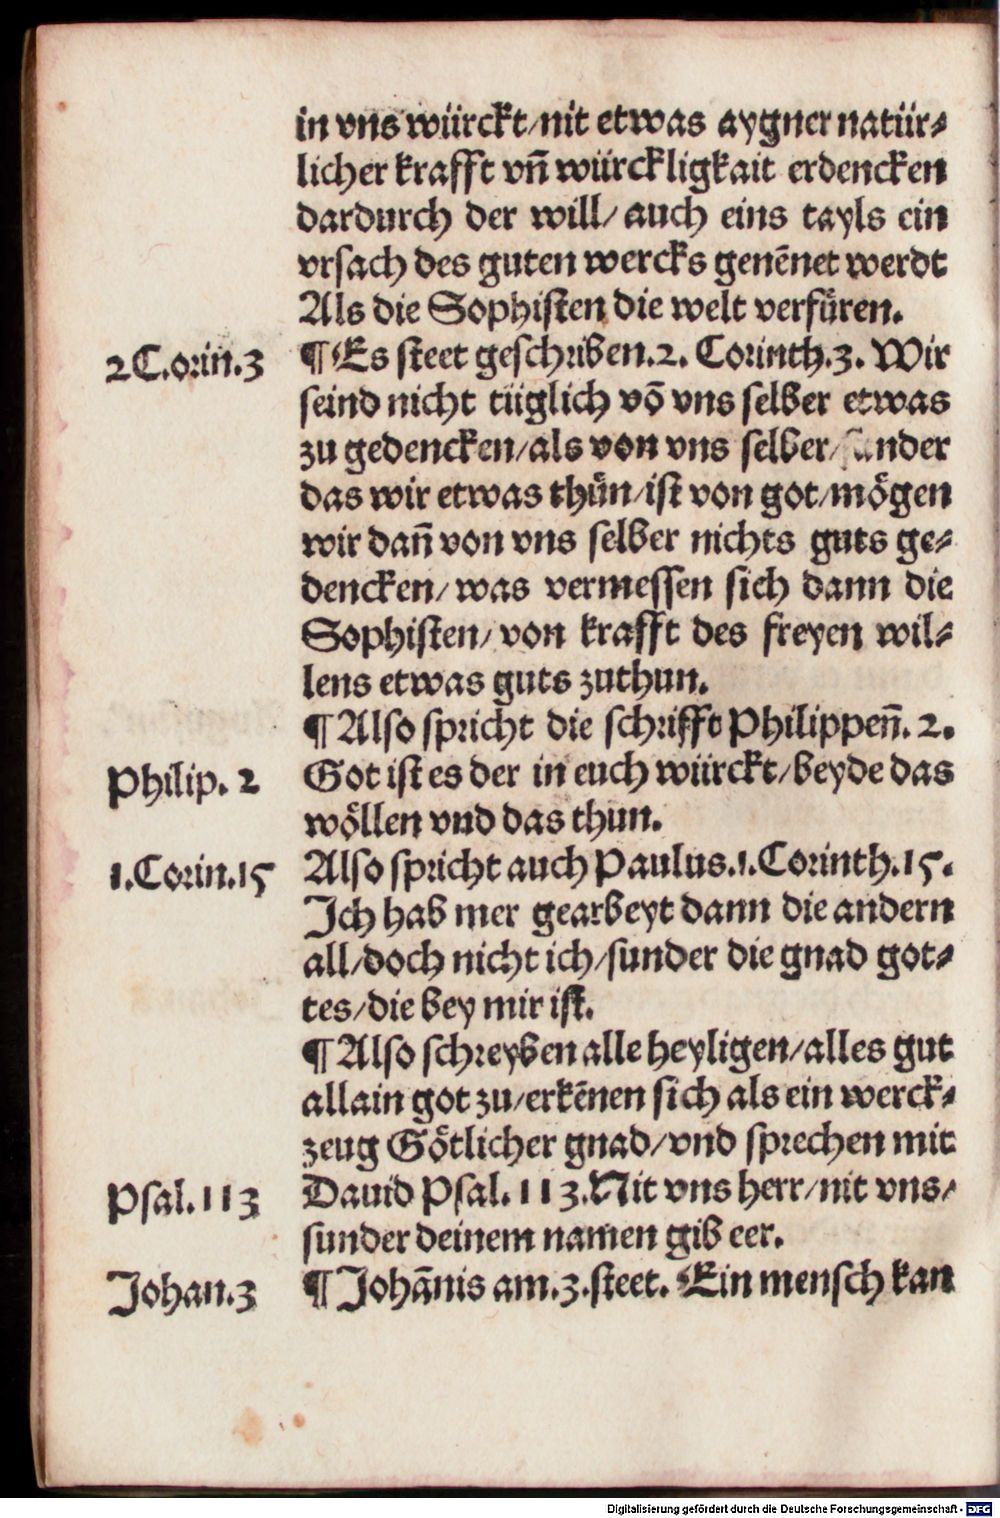 in vns würckt/nit etwas aygner natür⸗
licher krafft vn̄ würckligkait erdencken
dardurch der will/ auch eins tayls ein
vrsach des guten wercks genēnet werdt
Als die Sophisten die welt verfüren.
2 C.orin.3
¶ Es steet geschriben.2. Corinth.3. Wir
seind nicht tüglich vō vns selber etwas
zu gedencken/als von vns selber/sunder
das wir etwas thün/ist von got/mögen
wir dan̄ von vns selber nichts guts ge⸗
dencken/ was vermessen sich dann die
Sophisten/ von krafft des freyen wil⸗
lens etwas guts zuthun.
¶ Also spricht die schrifft Philippen̄. 2.
Philip. 2
Got ist es der in euch würckt/beyde das
wöllen vnd das thun.
1.Corin.15
Also spricht auch Paulus.1.Corinth.15.
Ich hab mer gearbeyt dann die andern
all/doch nicht ich/sunder die gnad got⸗
tes/die bey mir ist.
¶ Also schreyben alle heyligen/alles gut
allain got zu/erkēnen sich als ein werck⸗
zeug Götlicher gnad/vnd sprechen mit
Psal.113
Dauid Psal.113.Nit vns herr/nit vns/
sunder deinem namen gib eer.
Johan.3
¶ Johānis am.3.steet. Ein mensch kan
Digitalisierung gefördert durch die Deutsche Forschungsgemeinschaft - DFG